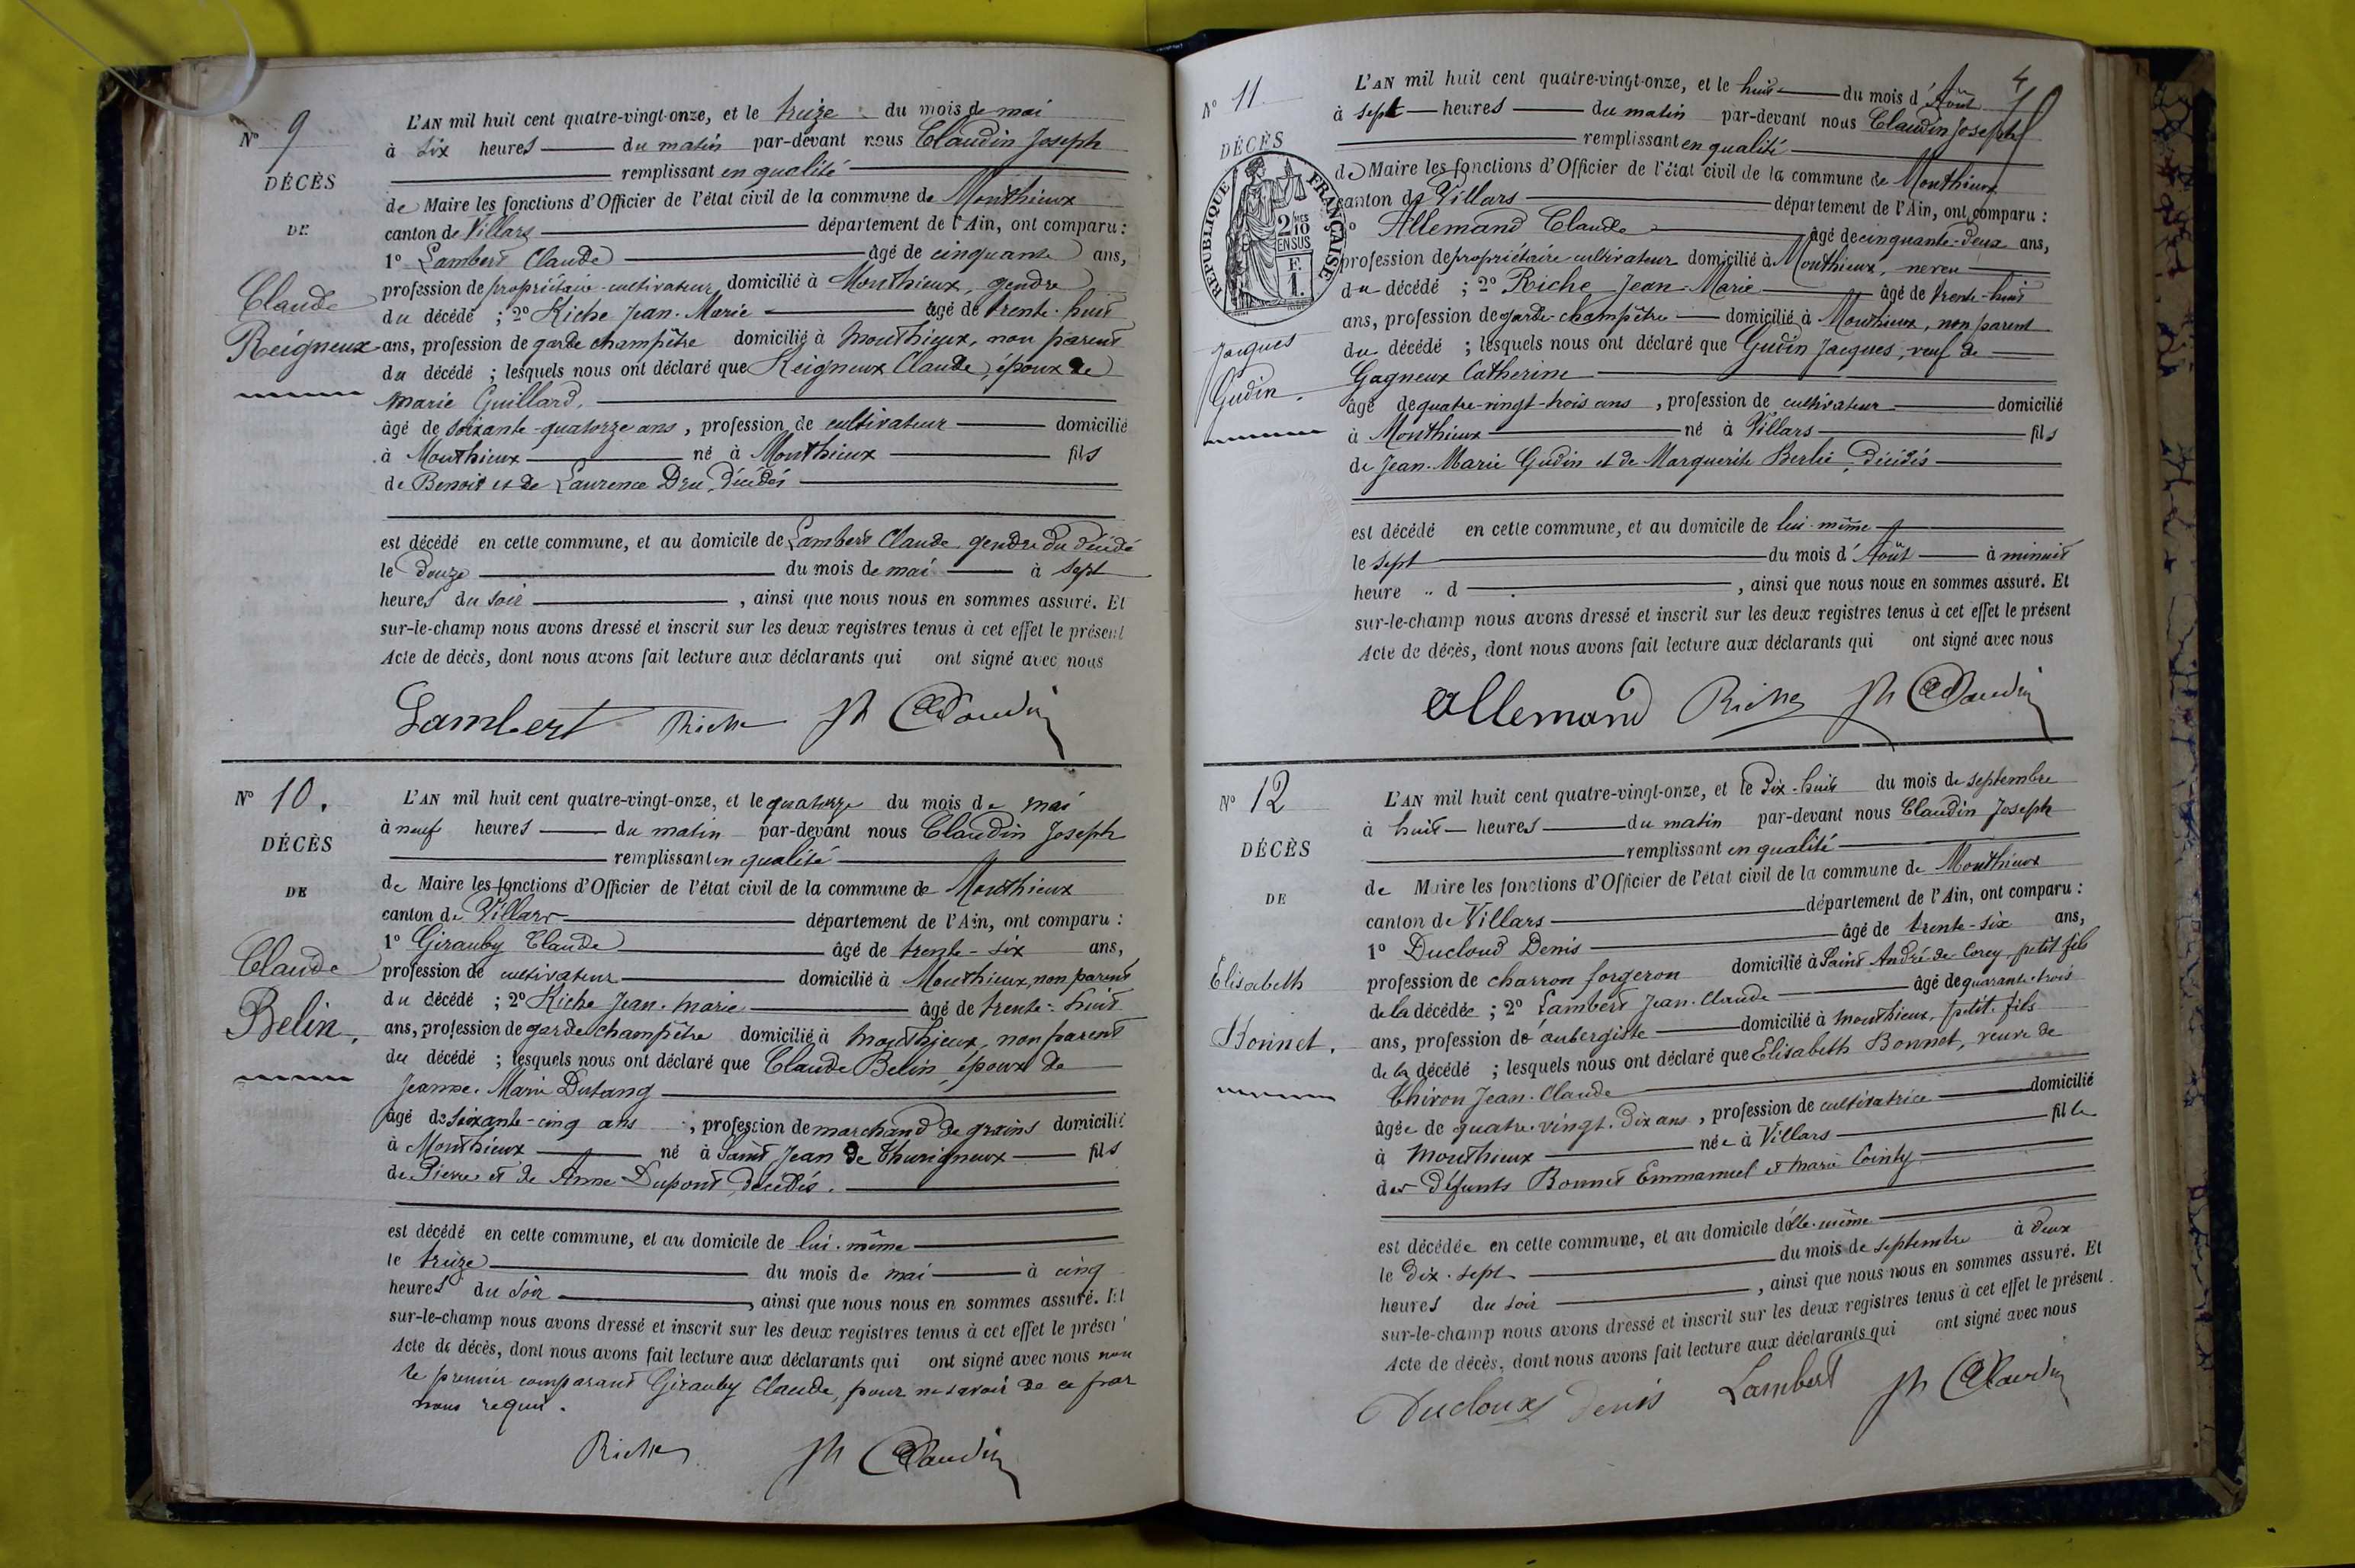 N° 9
DÉCÈS
DE
Claude
Reigneux
L'AN mil huit cent quatre-vingt-onze, et le treize du mois de mai
à six heures du matin par-devant nous Claudin Joseph
remplissant en qualité
de Maire les fonctions d'Officier de l'état civil de la commune de Monthieux
canton de Villars département de l'Ain, ont comparu :
1° Lambert Claude âgé de cinquante ans,
profession de propriétaire-cultivateur domicilié à Monthieux, gendre
du décédé ; 2° Riche Jean-Marie âgé de trente-huit
ans, profession de garde champêtre domicilié à Monthieux, non parent
du décédé ; lesquels nous ont déclaré que Reigneux Claude, époux de
Marie Guillard,
âgé de soixante-quatorze ans, profession de cultivateur domicilié
à Monthieux né à Monthieux fils
de Benoit et de Laurence Dru, décédés
est décédé en cette commune, et au domicile de Lambert Claude gendre du décédé
le douze du mois de mai à sept
heures du soir, ainsi que nous nous en sommes assuré. Et
sur-le-champ nous avons dressé et inscrit sur les deux registres tenus à cet effet le présent
Acte de décès, dont nous avons fait lecture aux déclarants qui ont signé avec nous
Lambert Riche Jh Claudin
N° 10.
DÉCÈS
DE
Claude
Belin.
L'AN mil huit cent quatre-vingt-onze, et le quatorze du mois de mai
à neuf heures du matin par-devant nous Claudin Joseph
remplissant en qualité
de Maire les fonctions d'Officier de l'état civil de la commune de Monthieux
canton de Villars département de l'Ain, ont comparu :
1° Girauby Claude âgé de trente-six ans,
profession de cultivateur domicilié à Monthieux, non parent
du décédé ; 2° Riche Jean-Marie âgé de trente-huit
ans, profession de garde champêtre domicilié à Monthieux, non parent
du décédé ; lesquels nous ont déclaré que Claude Belin, époux de
Jeanne-Marie Dutang
âgé de soixante-cinq ans, profession de marchand de grains domicilié
à Monthieux né à Saint Jean de Thurigneux fils
de Pierre et de Anne Dupont, décédés.
est décédé en cette commune, et au domicile de lui-même
le treize du mois de mai à cinq
heures du soir, ainsi que nous nous en sommes assuré. Et
sur-le-champ nous avons dressé et inscrit sur les deux registres tenus à cet effet le présent
Acte de décès, dont nous avons fait lecture aux déclarants qui ont signé avec nous non
le premier comparant Girauby Claude, pour ne savoir de ce par
nous requis.
Riche Jh Claudin
4
N° 11
DÉCÈS
RÉPUBLIQUE FRANÇAISE
2 MES
10
EN SUS
F.
1.
Jacques
Gudin.
L'AN mil huit cent quatre-vingt-onze, et le huit du mois d'Août
à sept heures du matin par-devant nous Claudin Joseph
remplissant en qualité
de Maire les fonctions d'Officier de l'état civil de la commune de Monthieux
canton de Villars département de l'Ain, ont comparu :
Allemand Claude âgé de cinquante-deux ans,
profession de propriétaire cultivateur domicilié à Monthieux, neveu
du décédé ; 2° Riche Jean-Marie âgé de trente-huit
ans, profession de garde-champêtre domicilié à Monthieux, non parent
du décédé ; lesquels nous ont déclaré que Gudin Jacques, veuf de
Gagneux Catherine
âgé de quatre-vingt-trois ans, profession de cultivateur domicilié
à Monthieux né à Villars fils
de Jean-Marie Gudin et de Marguerite Berlie, décédés
est décédé en cette commune, et au domicile de lui-même
le sept du mois d'Août à minuit
heure d , ainsi que nous nous en sommes assuré. Et
sur-le-champ nous avons dressé et inscrit sur les deux registres tenus à cet effet le présent
Acte de décès, dont nous avons fait lecture aux déclarants qui ont signé avec nous
Allemand Riche Jh Claudin
N° 12
DÉCÈS
DE
Elisabeth
Bonnet.
L'AN mil huit cent quatre-vingt-onze, et le dix-huit du mois de septembre
à huit heures du matin par-devant nous Claudin Joseph
remplissant en qualité
de Maire les fonctions d'Officier de l'état civil de la commune de Monthieux
canton de Villars département de l'Ain, ont comparu :
1° Ducloud Denis âgé de trente-six ans,
profession de charron forgeron domicilié à Saint André-de-Corcy, petit fils
de la décédée ; 2° Lambert Jean-Claude âgé de quarante-trois
ans, profession de aubergiste domicilié à Monthieux, petit-fils
de la décédé ; lesquels nous ont déclaré que Elisabeth Bonnet, veuve de
Thivon Jean-Claude
âgée de quatre-vingt-dix ans, profession de cultivatrice domicilié
à Monthieux née à Villars fille
des défunts Bonnet Emmanuel et Marie Cointy
est décédée en cette commune, et au domicile d'elle-même
le dix-sept du mois de septembre à deux
heures du soir, ainsi que nous nous en sommes assuré. Et
sur-le-champ nous avons dressé et inscrit sur les deux registres tenus à cet effet le présent
Acte de décès, dont nous avons fait lecture aux déclarants qui ont signé avec nous
Ducloux Denis Lambert Jh Claudin